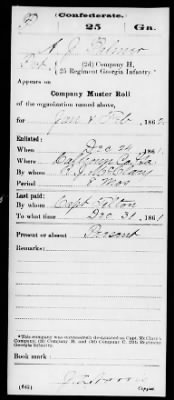 (Confederate.)
25 Ga.
A. J. Palmer
Pvt., (2d) Company H,
25 Regiment Georgia Infantry.*
Appears on
Company Muster Roll
of the organization named above,
for Jan & Feb, 186
Enlisted:
When Dec 24, 1861.
Where Calhoun Co. Ga.
By whom C. J. McClary
Period 6 Mos
Last paid:
By whom Capt
To what time Dec 31, 1861.
Present or absent Present
Remarks:
*This company was successively designated as Capt. McClary's
Company, (2d) Company H, and (2d) Company C, 25th Regiment
Georgia Infantry.
Book mark:
(642)
Copyist.